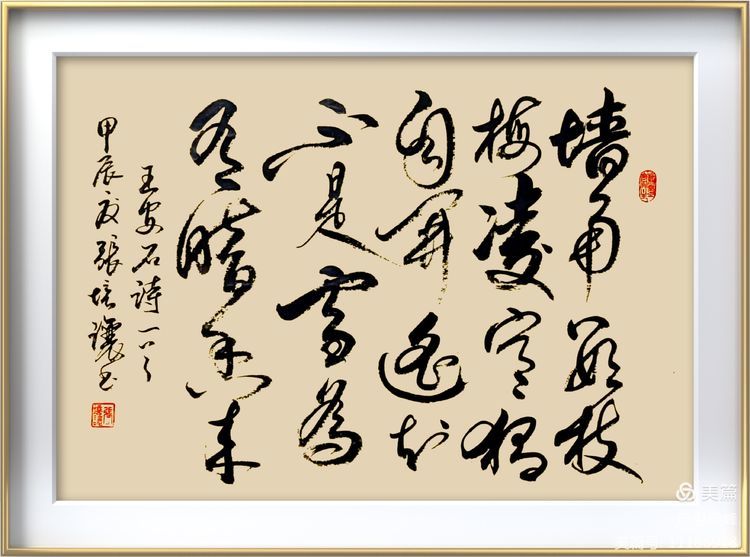 墙角数枝
梅凌寒独
自开遥知
不是雪為
有暗香来
王安石詩一首
甲辰夏張培书
美篇